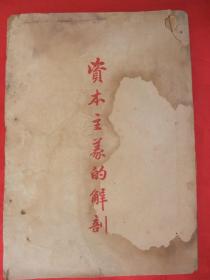 資本主義的解剖